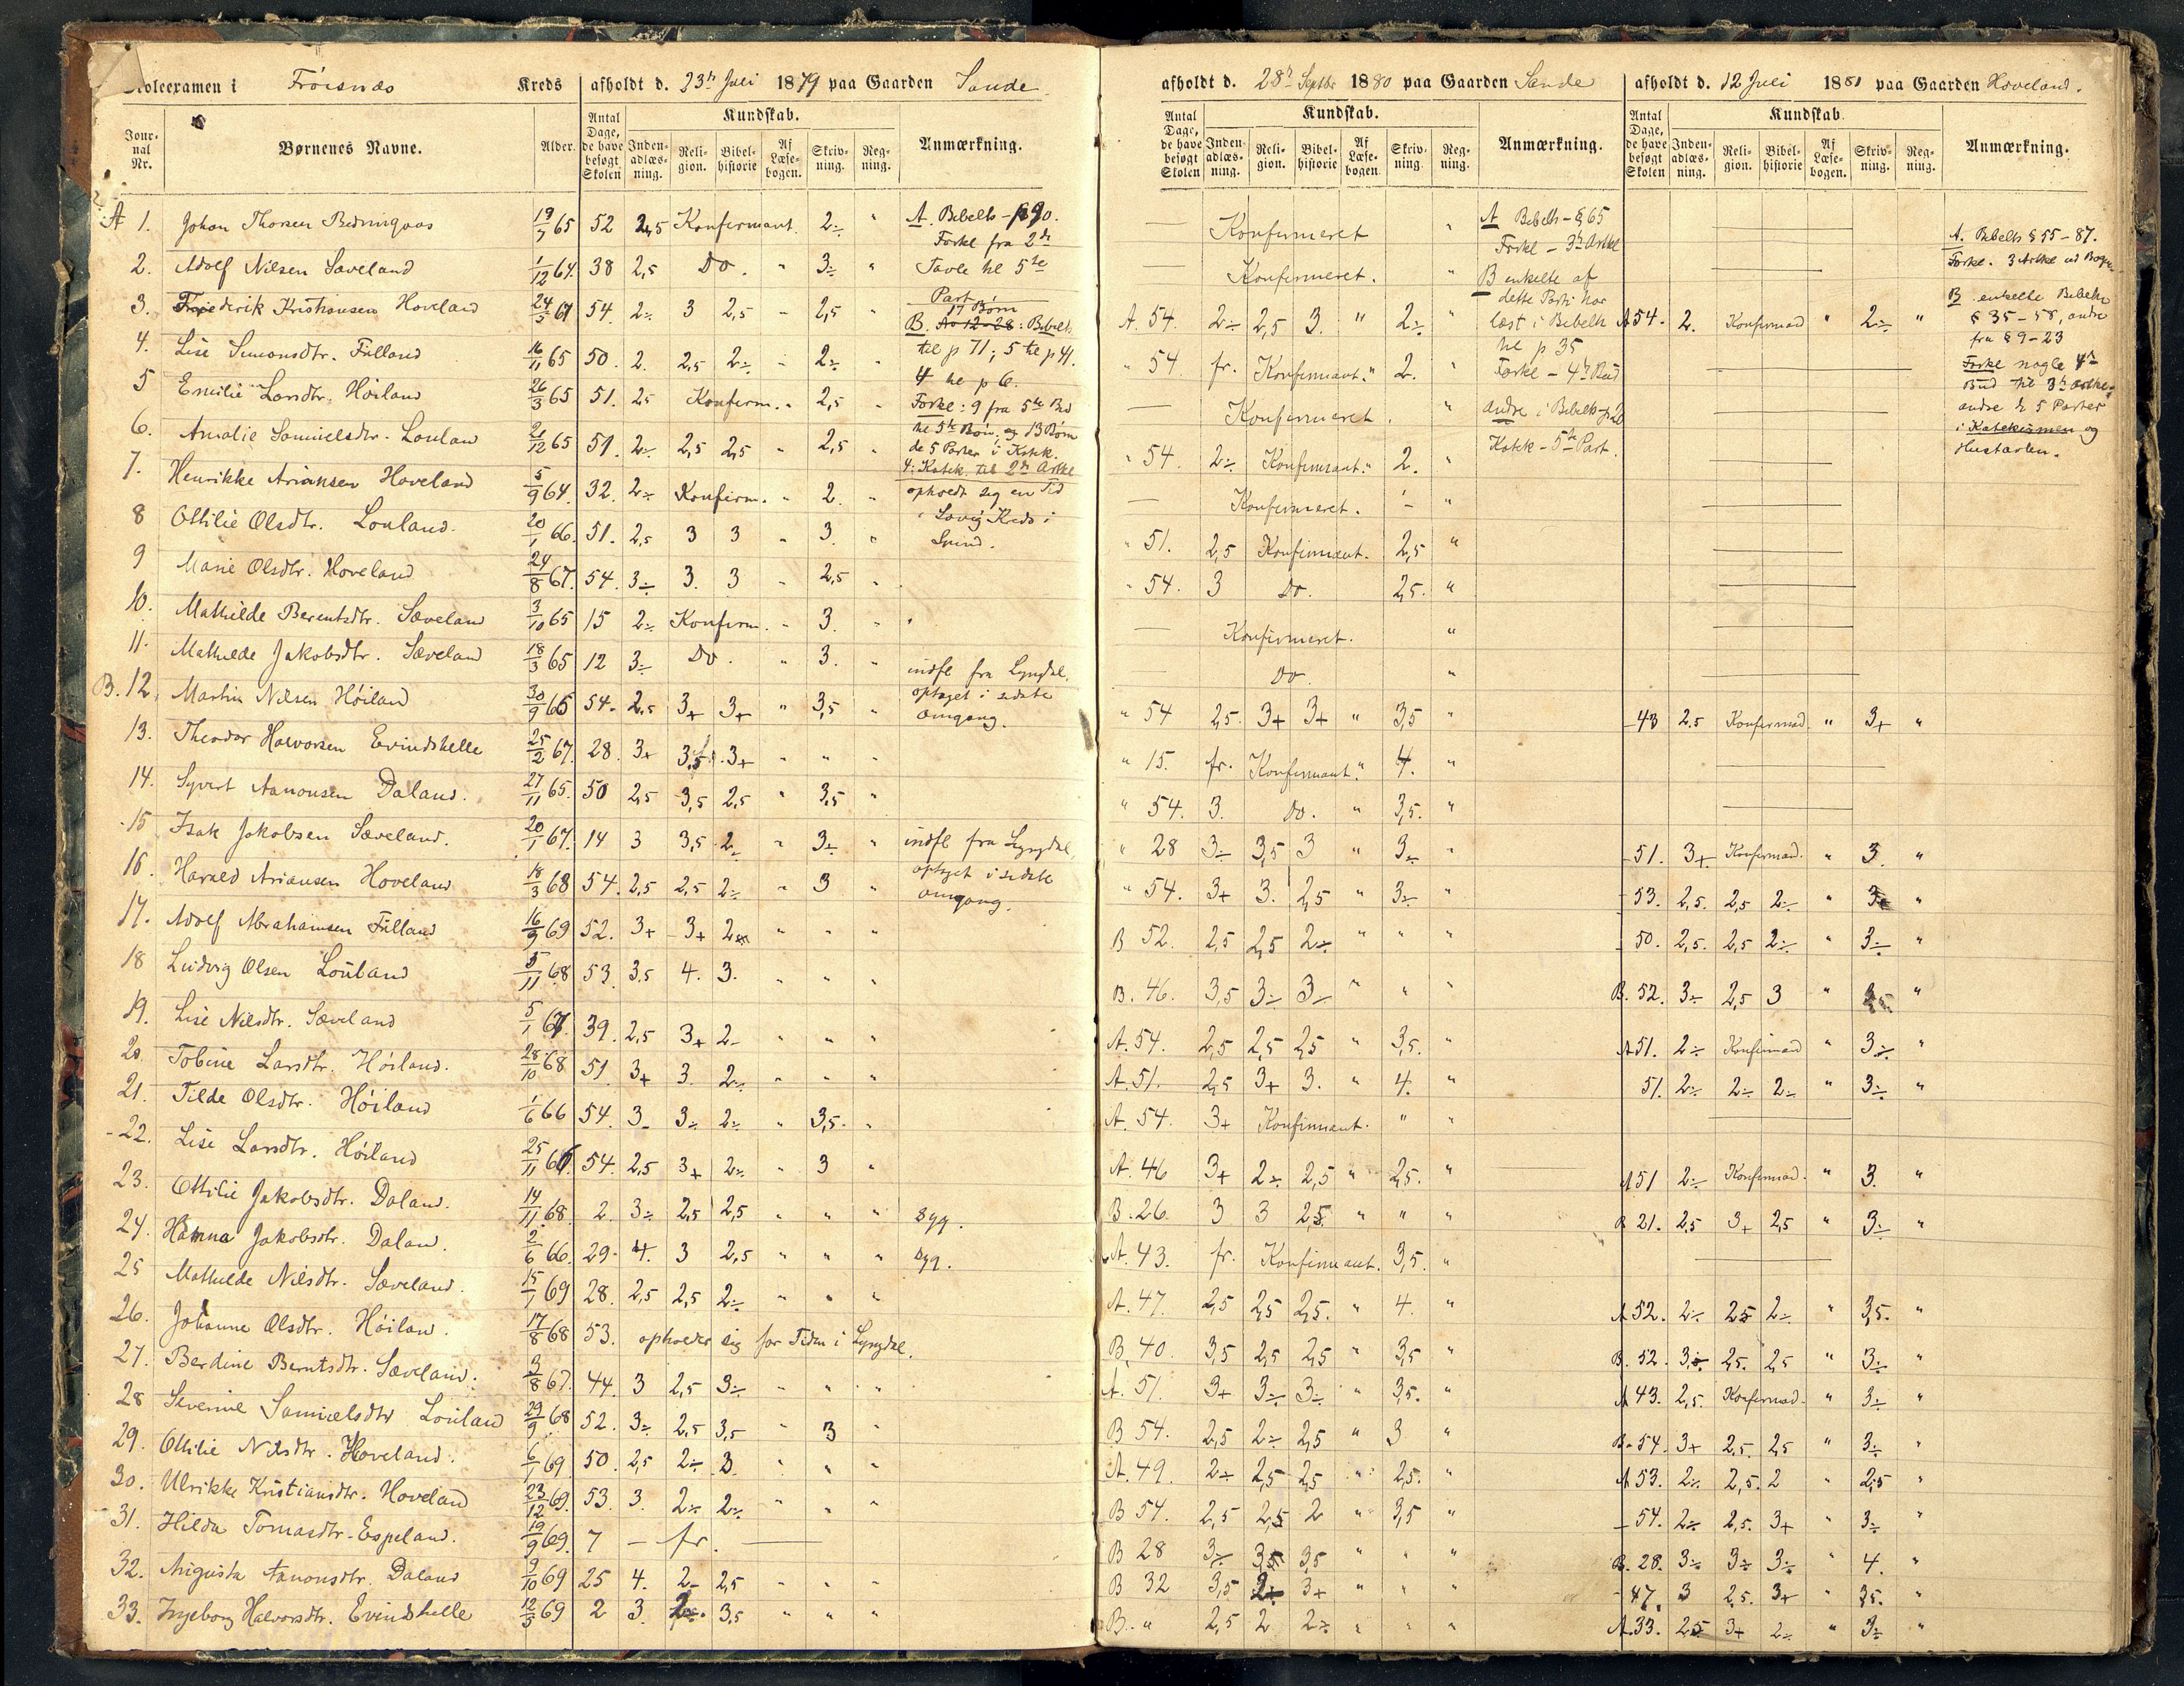 Skoleexamen i Fröisnæs Kreds afholdt d. 23de Juli 1879 paa Gaarden Sande
Jour-nal Nr. Børnenes Navne. Alder. Antal Dage, de have besøgt Skolen Kundskab. Inden-adlæs-ning. Reli-gion. Bibel-historie Af Læse-bogen. Skriv-ning. Reg-ning. Anmærkning.
A 1. Johan Thorsen 19/7 65 52 2,5 Konfirmant. 2÷ "
2. Adolf Nilsen Sæveland 1/12 64. 38 2,5 Do. " 3÷ "
3. Frederik Kristiansen Hoveland 24/5 67 54. 2÷ 3 2,5 - 2,5 -
4. Lise Simonsdtr. Fülland 16/11 65 50. 2. 2,5 2÷ - 2÷ "
5 Emilie Larsdtr. Höiland 26/3 65 51. 2,5 Konfirm. " 2,5 "
6. Amalie Samuelsdtr. Louland 21/12 65 51. 2÷ 2,5 2,5 " 2,5 "
7. Henrikke Ariansen Hoveland 5/9 64. 32. 2÷ Konfirm. - 2. "
8 Ottilie Olsdtr. Louland. 20/1 66. 51. 2,5 3 3 - 3. "
9 Marie Olsdtr. Hoveland 24/8 67. 54. 3÷ 3. 3 - 2,5 -
10. Mathilde Berentsdtr. Sæveland 3/10 65 15 2÷ Konfirm. - 3. "
11. Mathilde Jakobsdtr. Sæveland 18/3 65 12 3÷ Do. " 3. "
B. 12. Martin Nilsen Höiland 30/9 65 54. 2,5 3+ 3+ " 3,5 "
13. Theodor Halvorsen Evindshelle 25/2 67. 28. 3+ 3,5 3+ - " "
14. Syvert Aanonsen Daland. 27/11 65. 50 2,5 3,5 2,5 " 3,5 "
15 Isak Jakobsen Sæveland. 20/1 67. 14 3 3,5 2÷ " 3÷ "
16. Harald Ariansen Hoveland 18/3 68 54. 2,5 2,5 2÷ " 3 "
17. Adolf Abrahamsen Fülland 16/9 69 52. 3+ 3+ 2÷ " " "
18 Ludvig Olsen Louland 5/11 68 53 3,5 4. 3. " " "
19. Lise Nilsdtr. Sæveland 5/1 67 39. 2,5 3+ 2- " " "
20. Tobine Larsdtr. Höiland. 28/10 68 51 3+ 3. 2÷ " " "
21. Tilde Olsdtr. Höiland 1/6 66 54. 3- 3÷ 2÷ " 3,5. "
22. Lise Larsdtr. Höiland 25/11 66 54. 2,5 3+ 2÷ " 3 "
23. Ottilie Jakobsdtr. Daland. 14/11 68. 2. 3÷ 2,5 2,5 " " " syg.
24. Hanna Jakobsdtr. Daland. 2/6 66 29. 4. 3 2,5 " " " syg.
25 Mathilde Nilsdtr. Sæveland. 15/1 69 28. 2,5 2,5 2÷ " " "
26. Johanne Olsdtr. Höiland. 17/8 68 53. opholder sig for Tiden i Lyngdal.
27. Berdine Berntsdtr. Sæveland. 3/8 67. 44. 3 2,5 3÷ " " "
28 Severine Samuelsdtr Louland 29/9 68 52. 3÷ 2,5 3,5 " 3 "
29. Ottilie Nilsdtr. Hoveland. 6/1 69 50. 2,5 2÷ 3. " " "
30. Ulrikke Kristiansdtr. Hoveland 23/12 69. 53. 3. 2÷ 2÷ " " "
31. Hilda Tomasdtr. Espeland. 19/9 69. 7 - fr. -
32. Augusta Aanonsdtr. Daland 9/10 69 25 4. 2- 2,5 " " "
33. Ingeborg Halvorsdtr. Evindshelle 12/5 69 2 3. 2÷. 3,5 " " "
A. Bibelh - p 90.
Forkl fra 2de
Tavle til 5te
Part
17 Børn
B. No 12-28: Bibelh.
til p 71; 5 til p 41.
4 til p 6.
Forkl: 9 fra 5te Bud
til 5te Bön, og 13 Börn
de 5 Parter i Katek.
4. Katek. til 2den Artkl
opholdt sig en Tid
i Kreds i
Spind.
indfl fra Lyngdal,
optaget i sidste
Omgang.
indfl fra Lyngdal,
optaget i sidste
omgang.
afholdt d. 28de Septbr 1880 paa Gaarden Sande
Antal Dage, de have besøgt Skolen Kundskab. Inden-adlæs-ning. Reli-gion. Bibel-historie Af Læse-bogen. Skriv-ning. Reg-ning. Anmærkning.
— Konfirmeret "
— Konfirmeret. "
A. 54. 2÷ 2,5 3. " 2÷ "
" 54 fr. Konfirmant. " 2. "
— Konfirmeret. "
" 54. 2÷ Konfirmant. " 2. "
— Konfirmeret. - "
" 51. 2,5 Konfirmant. 2,5 "
" 54. 3 Do. 2,5. "
— Konfirmeret. "
— Do. "
" 54 2,5. 3+ 3+ " 3,5 "
" 15. fr. Konfirmant. " 4. "
" 54. 3. Do. " 3,5. "
" 28 3÷ 3,5 3 " 3÷ "
" 54. 3+ 3. 2,5 " 3÷ "
B 52. 2,5 2,5 2÷ " " "
B. 46. 3,5 3÷ 3÷ " " "
A. 54. 2,5 2,5 2,5 " 3,5. "
A. 51. 2,5 3+ 3. " 4. "
A. 54. 3+ Konfirmant. " "
A. 46 3+ 2÷ 2,5 " 2,5. "
B. 26. 3 3 2,5 " " "
A. 43. fr. Konfirmant. 3,5. "
A. 47. 2,5 2,5 2,5. " 4. "
B. 40. 3,5 2,5 2,5 " 3,5 "
A. 51. 3+ 3÷ 3÷ " 3,5. "
B 54. 2,5 2÷ 2,5 " 3 "
A. 49. 2+ 2,5 2,5 " 2,5. "
B 54. 2,5 2,5 2 " 3,5 "
B 28 3÷ 3,5 3,5 " " "
B 32 3,5 2+ 3+ " " "
B. " 2,5 2 2÷ " " "
A Bibelh - § 65
Forkl - 3die Artkl
B enkelte af
dette Parti har
læst i Bibelh
til p 35
Forkl - 4de Bud
andre i Bibelh - p 20
Katek - 5te Part.
afholdt d. 12 Juli 1881 paa Gaarden Hoveland.
Antal Dage, de have besøgt Skolen Kundskab. Inden-adlæs-ning. Reli-gion. Bibel-historie Af Læse-bogen. Skriv-ning. Reg-ning. Anmærkning.
A 54. 2. Konfirmand " 2÷ "
43 2.5 Konfirmand. " 3+ "
51. 3+ Konfirmand. " 3. "
53. 2,5. 2,5 2÷ " 3 "
50. 2,5. 2,5 2÷ " 3÷ "
B. 52. 3÷ 2,5 3 " 3,5 "
A 51. 2÷ Konfirmand " 3÷ "
51. 2÷ 2÷ 2÷ " 3÷ "
A 51 2÷ Konfirmand. " 3. "
B 21. 2,5 3+ 2,5 " 3÷ "
A 52. 2÷ 2,5 2÷ " 3,5. "
B. 52. 3÷ 2,5. 2,5 " 3÷ "
A 43. 2,5. Konfirmand. " 3÷ "
B. 54. 3+ 2,5. 2,5 " 3÷ "
A 53. 2÷ 2,5. 2 " 2,5 "
54. 2÷ 2,5. 3+ " 3÷ "
B. 28. 3÷ 3÷ 3÷ " 4. "
47. 3 2,5. 3+ " 3,5. "
A. 33. 2,5 3+ 2÷ " 3÷ "
A. Bibelh § 55-87.
Forkl. 3 Artkl ud Bogen
B enkelte Bibelh
§ 35-58, andre
fra § 9-23
Forkl nogle 4de
Bud til 3die Artkl,
andre de 5 Parter
i Katekismen og
Hustavlen.